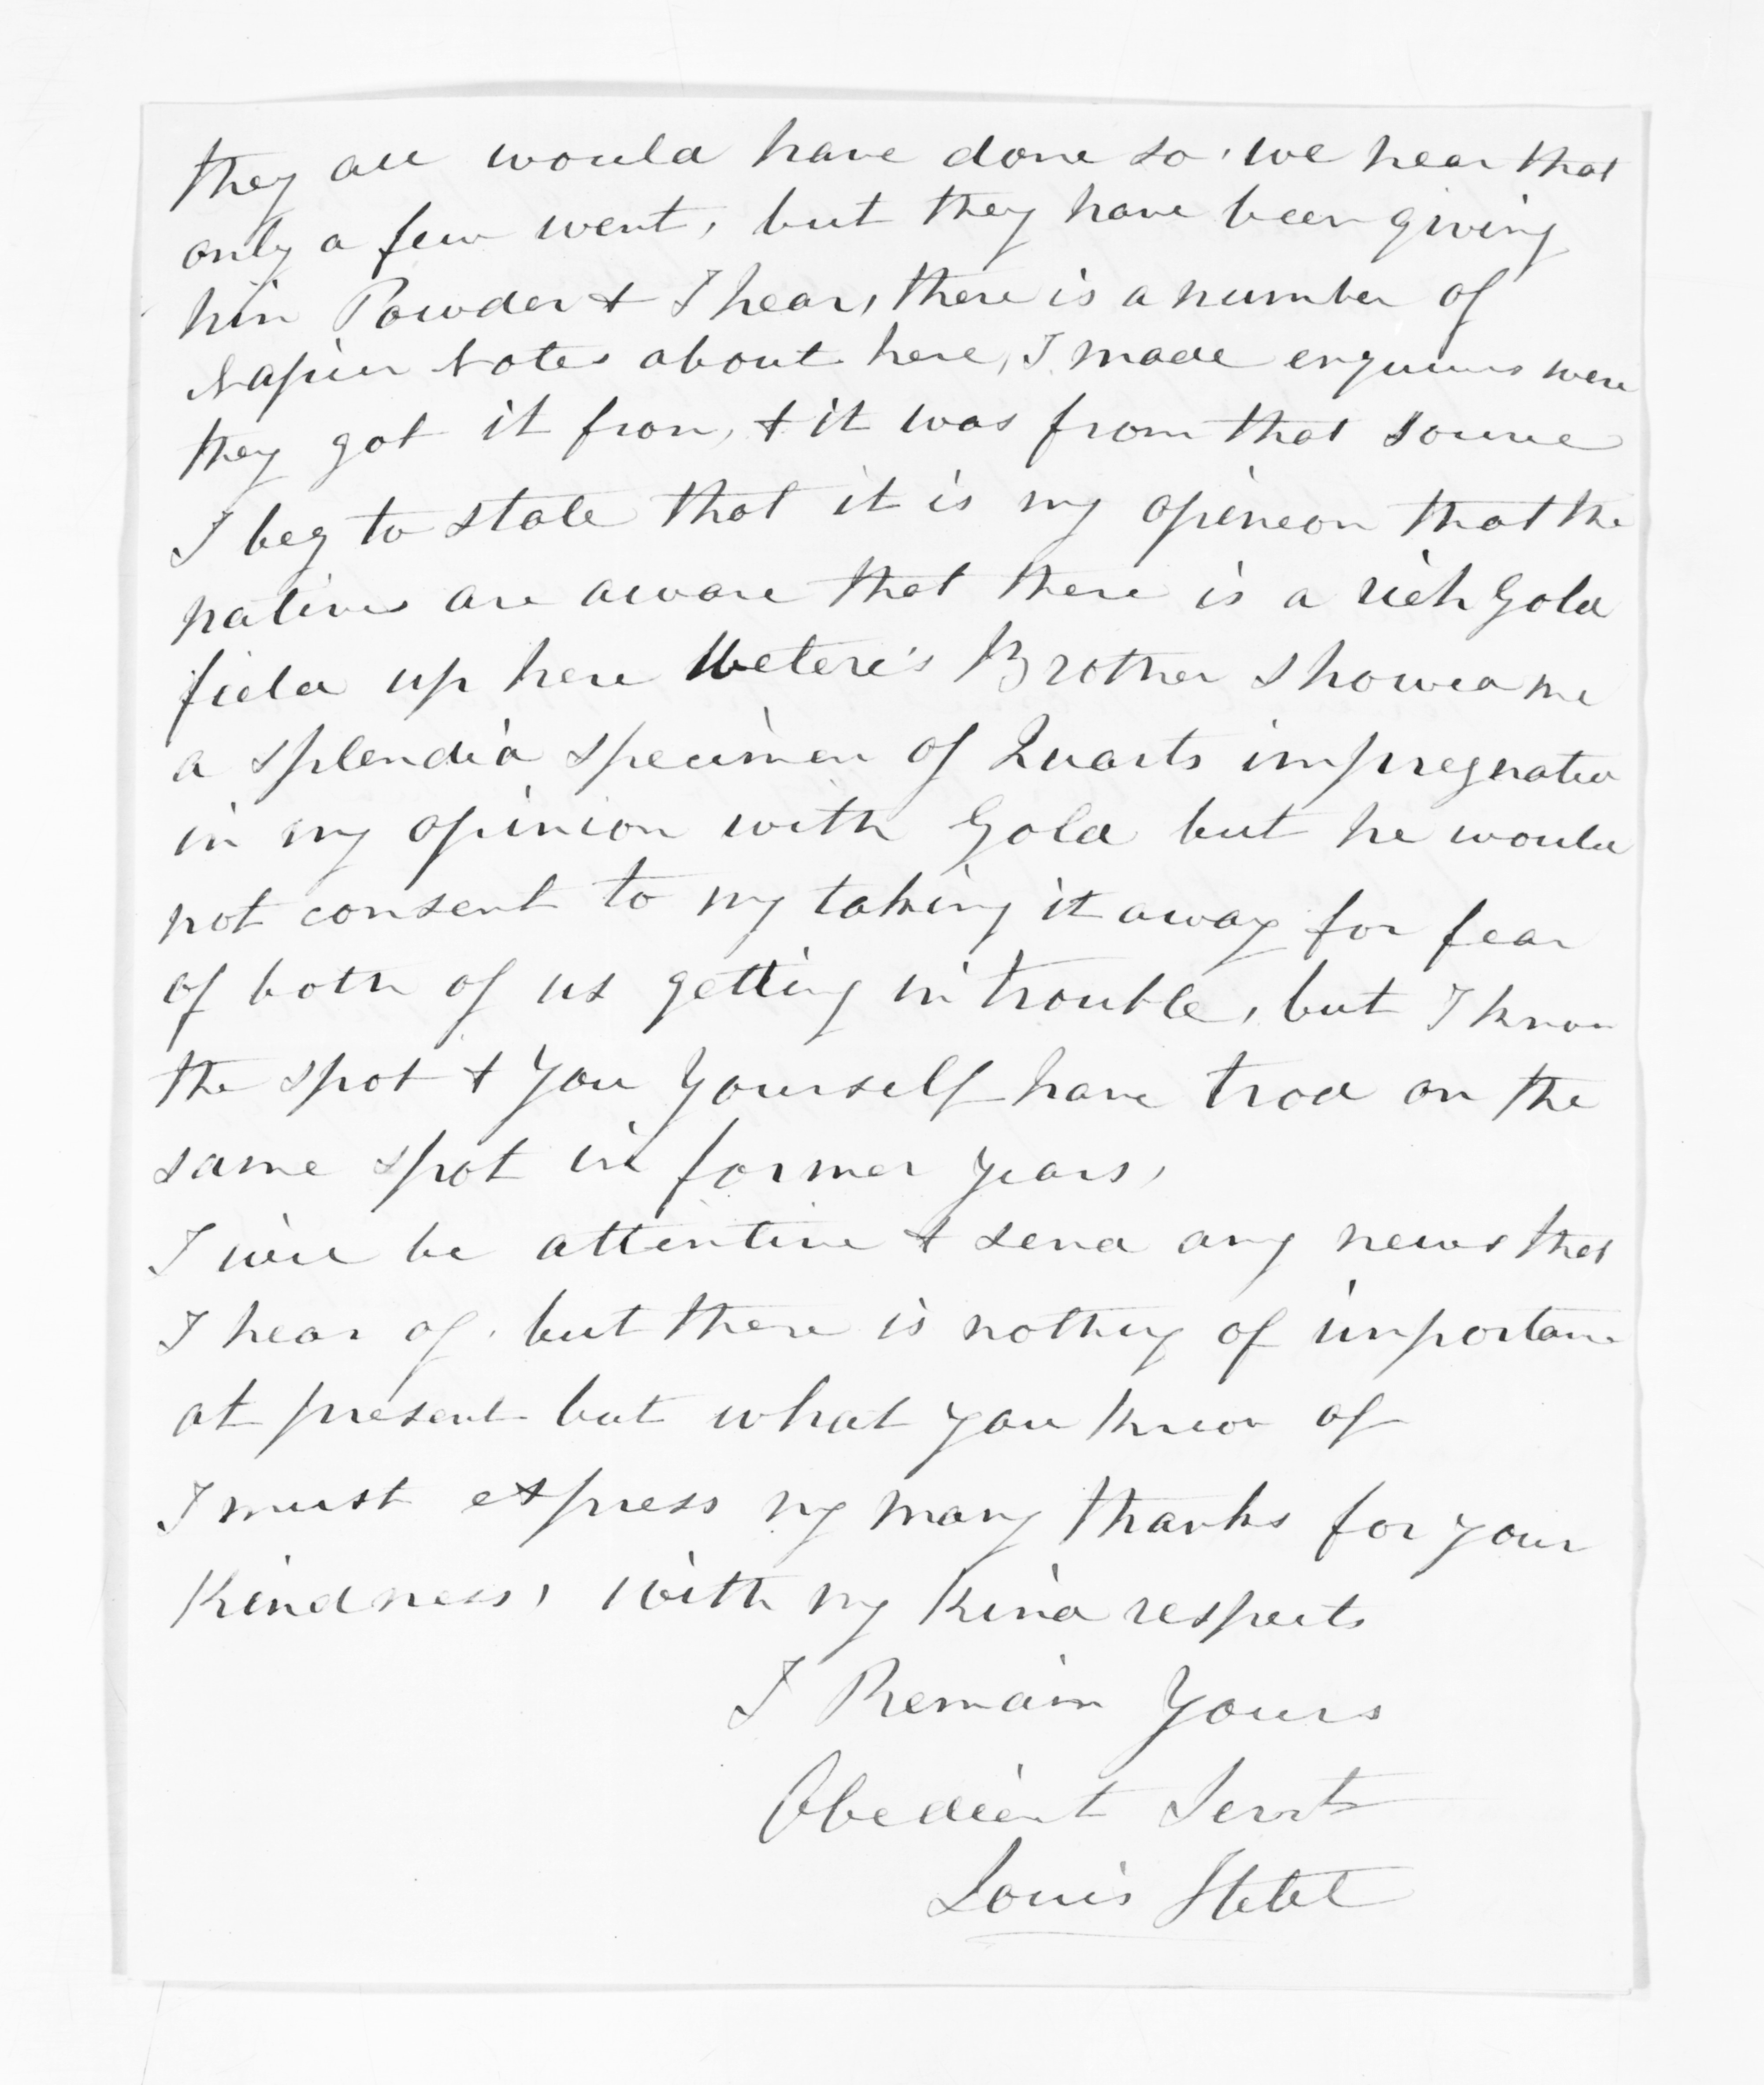 they all would have done so, we hear that
only a few went, but they have been giving
him Powder & I hear, there is a number of
Napier Notes about here, I made enquiries were
they got it from, & it was from that source
I beg to state that it is my opineon that the
natives are aware that there is a rich Gold
field up here Wetere's Brother showed me
a splendid specimen of Quarts impregnated
in my opinion with Gold but he would
not consent to my taking it away for fear
of both of us getting in trouble, but I know
the spot & you yourself have trod on the
same spot in former years,
I will be attentive & send any news that
I hear of, but there is nothing of importance
at present but what you know of
I must express my many thanks for your
Kindness, with my Kind respects
I Remain Yours
Obedient Servt
Louis Hetet